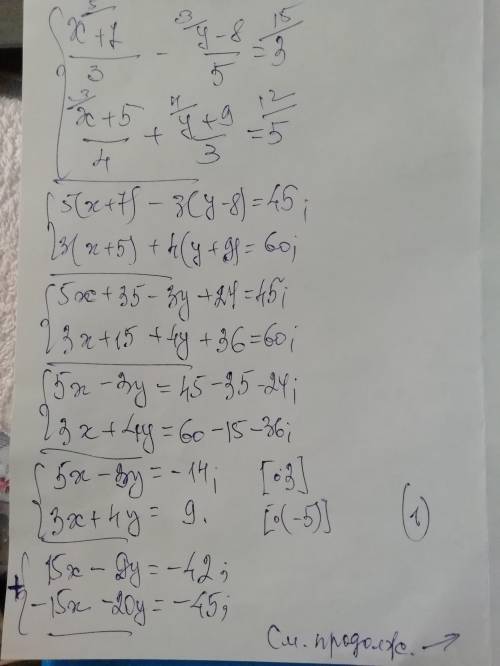 { (x+7)/3 ⁵⁄ - (y-8)/5 ³⁄ = 3 ¹⁵⁄
(x+5)/4 ³⁄ + (y+9)/3 ⁴⁄ = 5 ¹²⁄
{ 5(x+7) - 3(y-8) = 45;
3(x+5) + 4(y+9) = 60;
{ 5x + 35 - 3y + 24 = 45;
3x + 15 + 4y + 36 = 60;
{ 5x - 3y = 45 - 35 - 24;
3x + 4y = 60 - 15 - 36;
{ 5x - 3y = -14; [·3]
3x + 4y = 9. [·(-5)] (1)
+{ 15x - 9y = -42;
-15x - 20y = -45;
См. продолж. →